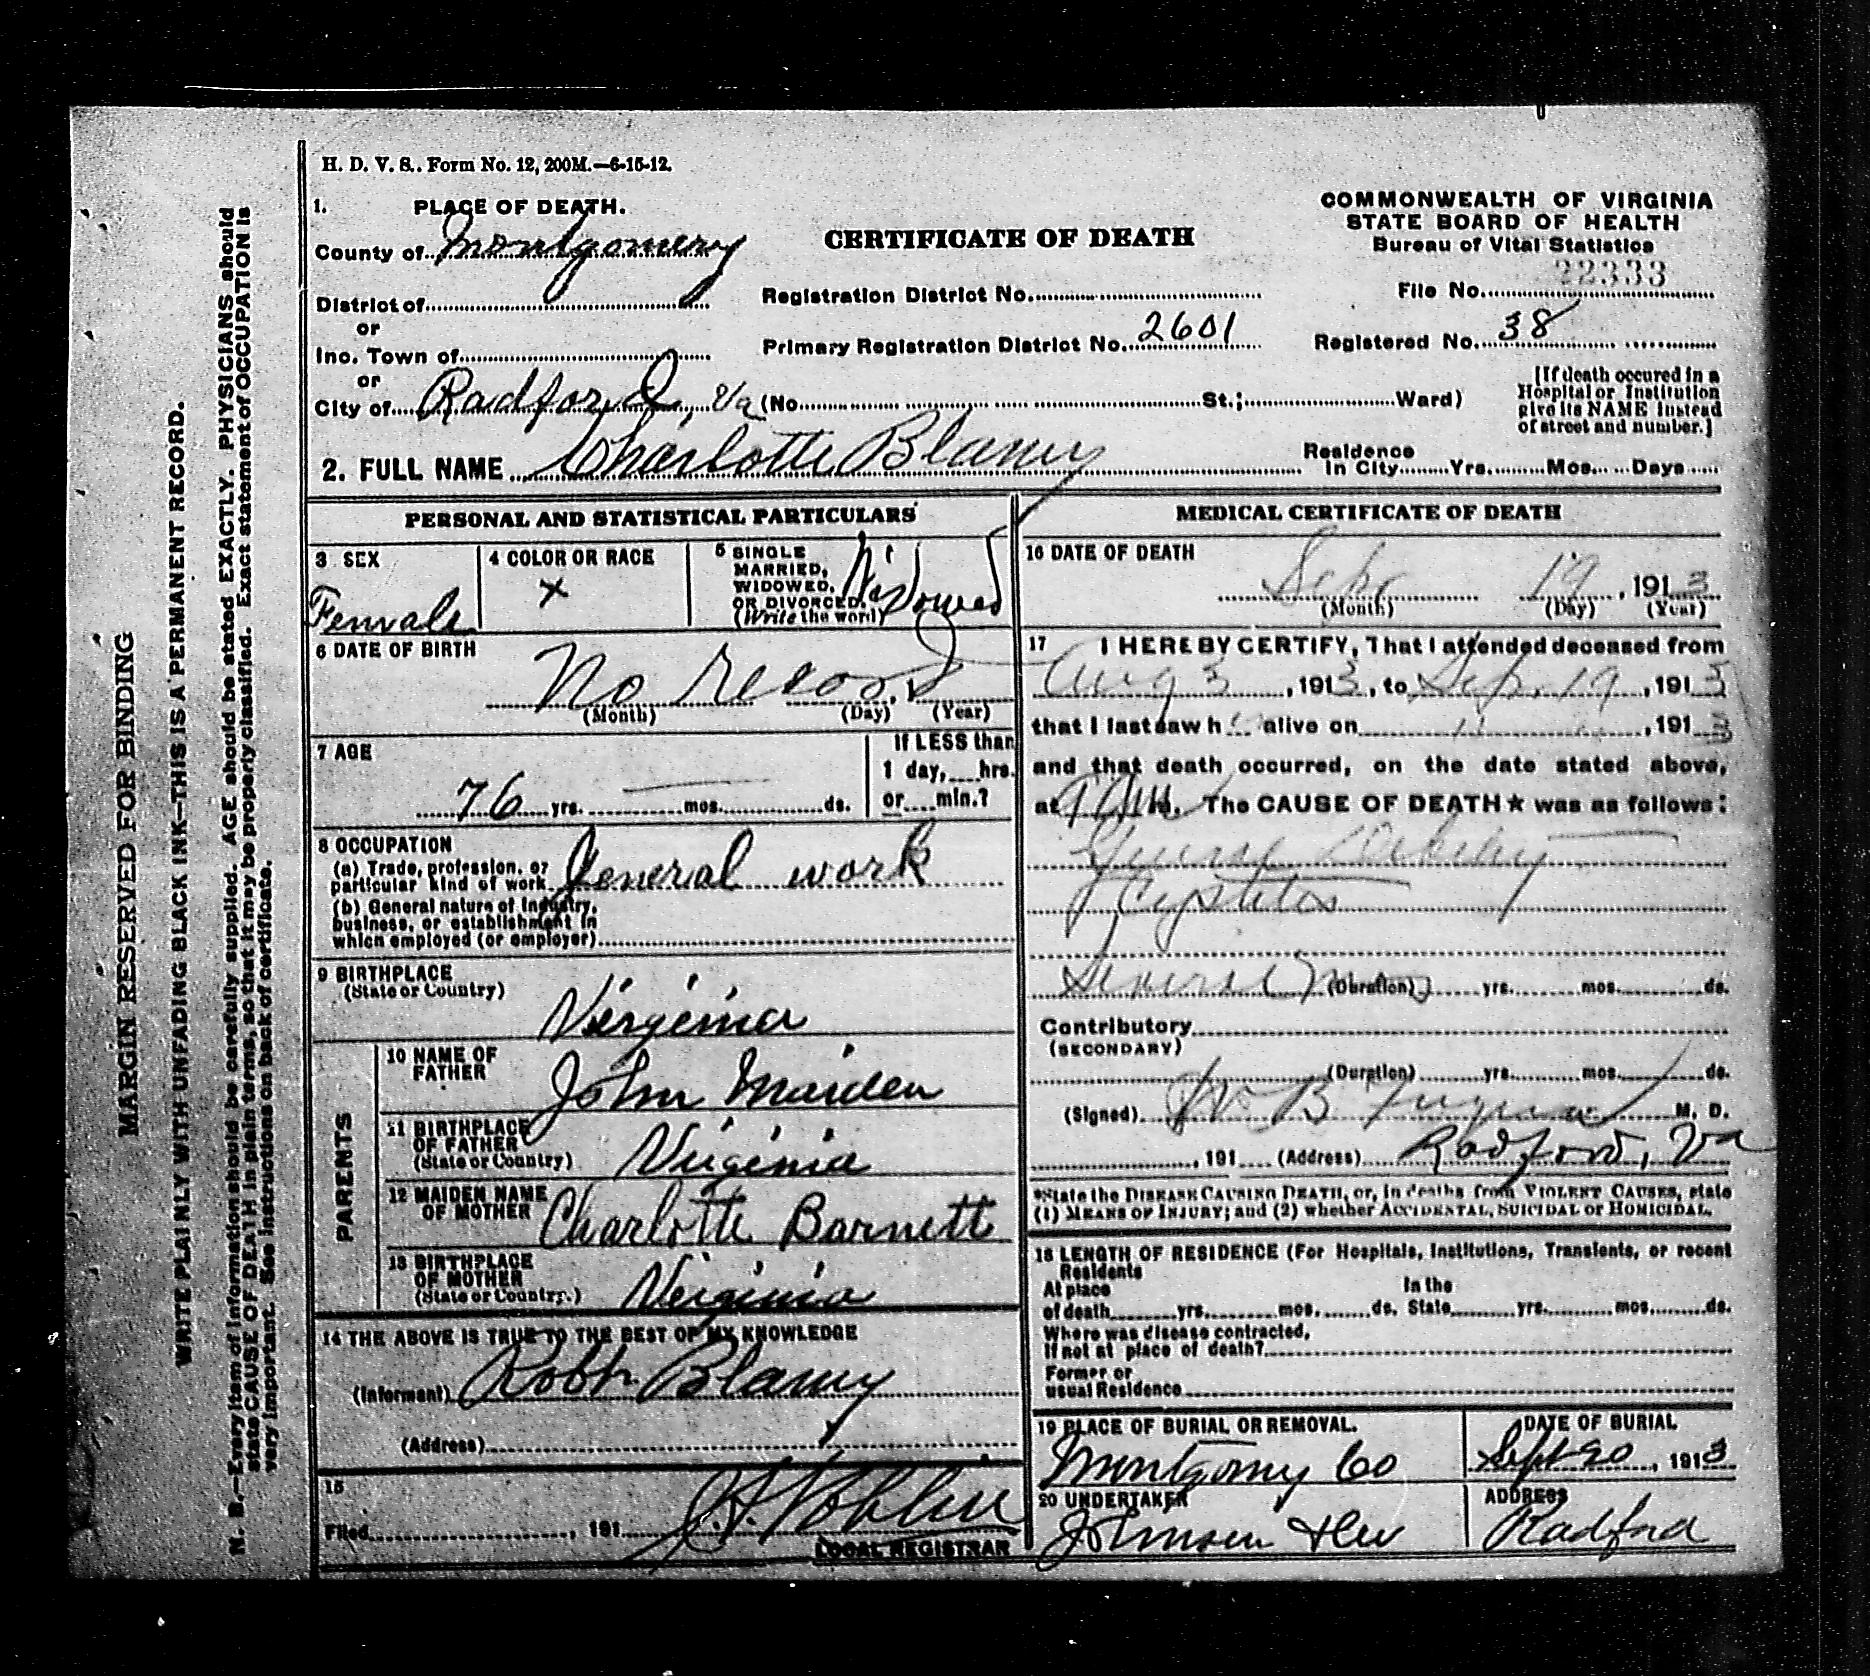 H. D. V. S.. Form No. 12, 200M.—6-15-12.
1. PLACE OF DEATH.
County of Montgomery
District of
or
Ino. Town of
or
City of Radford, Va (No. St.; Ward)
CERTIFICATE OF DEATH
Registration District No.
Primary Registration District No. 2601
COMMONWEALTH OF VIRGINIA
STATE BOARD OF HEALTH
Bureau of Vital Statistics
File No. 22333
Registered No. 38
[If death occured in a
Hospital or Institution
give its NAME instead
of street and number.]
2. FULL NAME Charlotte Blaney
Residence
In City Yrs. Mos. Days
PERSONAL AND STATISTICAL PARTICULARS
3 SEX
Female
4 COLOR OR RACE
x
5 SINGLE
MARRIED,
WIDOWED,
OR DIVORCED.
(Write the word)
Widowed
6 DATE OF BIRTH
No Record
(Month) (Day) (Year)
7 AGE
76 yrs. mos. ds.
If LESS than
1 day, hrs.
or min.?
8 OCCUPATION
(a) Trade, profession, or
particular kind of work General work
(b) General nature of Industry,
business, or establishment in
which employed (or employer)
9 BIRTHPLACE
(State or Country)
Virginia
PARENTS
10 NAME OF
FATHER
John Maiden
11 BIRTHPLACE
OF FATHER
(State or Country)
Virginia
12 MAIDEN NAME
OF MOTHER
Charlotte Barnett
13 BIRTHPLACE
OF MOTHER
(State or Country.)
Virginia
14 THE ABOVE IS TRUE TO THE BEST OF MY KNOWLEDGE
(Informant) Robt Blaney
(Address)
15
Filed , 191
LOCAL REGISTRAR
MEDICAL CERTIFICATE OF DEATH
16 DATE OF DEATH
Sept 19, 1913
(Month) (Day) (Year)
17 I HEREBY CERTIFY, That I attended deceased from
Aug 3, 1913, to Sep. 19, 1913
that I last saw h alive on " , 1913
and that death occurred, on the date stated above,
at 9 A m. The CAUSE OF DEATH* was as follows:
General
Cystitis
Several (Duration) yrs. mos. ds.
Contributory
(SECONDARY)
(Duration) yrs. mos. ds.
(Signed) B M. D.
, 191 (Address) Radford, Va
*State the DISEASE CAUSING DEATH, or, in deaths from VIOLENT CAUSES, state
(1) MEANS OF INJURY; and (2) whether ACCIDENTAL, SUICIDAL or HOMICIDAL.
18 LENGTH OF RESIDENCE (For Hospitals, Institutions, Transients, or recent
Residents
At place In the
of death yrs. mos. ds. State yrs. mos. ds.
Where was disease contracted,
If not at place of death?
Former or
usual Residence
19 PLACE OF BURIAL OR REMOVAL.
Montgomy Co
DATE OF BURIAL
Sept 20, 1913
20 UNDERTAKER
Johnson
ADDRESS
Radford
MARGIN RESERVED FOR BINDING
WRITE PLAINLY WITH UNFADING BLACK INK—THIS IS A PERMANENT RECORD.
N. B.—Every item of information should be carefully supplied. AGE should be stated EXACTLY. PHYSICIANS should
state CAUSE OF DEATH in plain terms, so that it may be properly classified. Exact statement of OCCUPATION is
very important. See instructions on back of certificate.